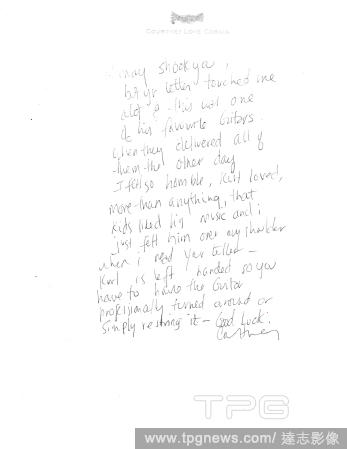 COURTNEY LOVE COBAIN
may shock you,
but yr letter touched me
alot & this was one
of his favourite Guitars.
when they delivered all of
them the other day
I felt so humble, Kurt loved,
more than anything, that
kids liked his music and i
just felt him over my shoulder
when i read your letter –
Kurt is left handed so you
have to have the Guitar
professionally turned around or
simply restring it – Good Luck.
Courtney
TPG
www.tpgnews.com/ 達志影像